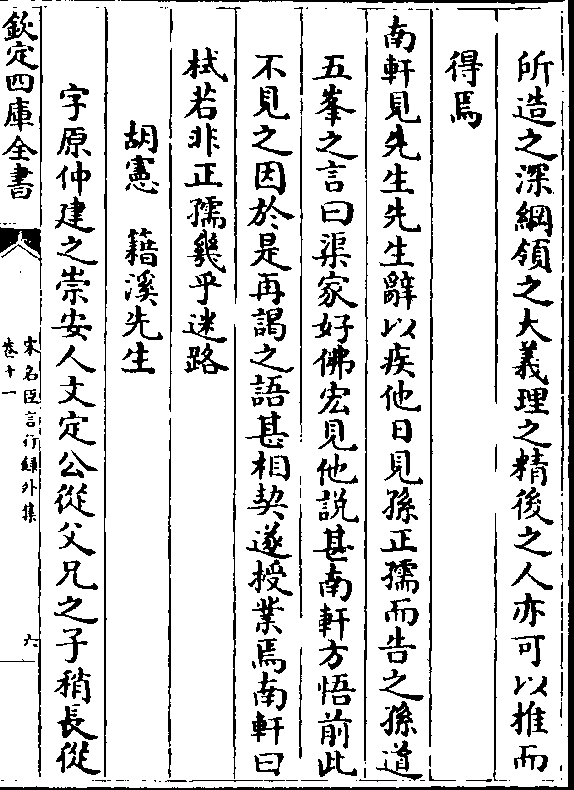 所造之深綱領之大義理之精後之人亦可以推而
得焉
南軒見先生先生辭以疾他日見孫正孺而告之孫道
五峯之言曰渠家好佛宏見他説甚南軒方悟前此
不見之因於是再謁之語甚相契遂授業焉南軒曰
栻若非正孺幾乎迷路
胡憲　籍溪先生
字原仲建之崇安人文定公從父兄之子稍長從
欽定四庫全書
宋名臣言行録外集
卷十一
六